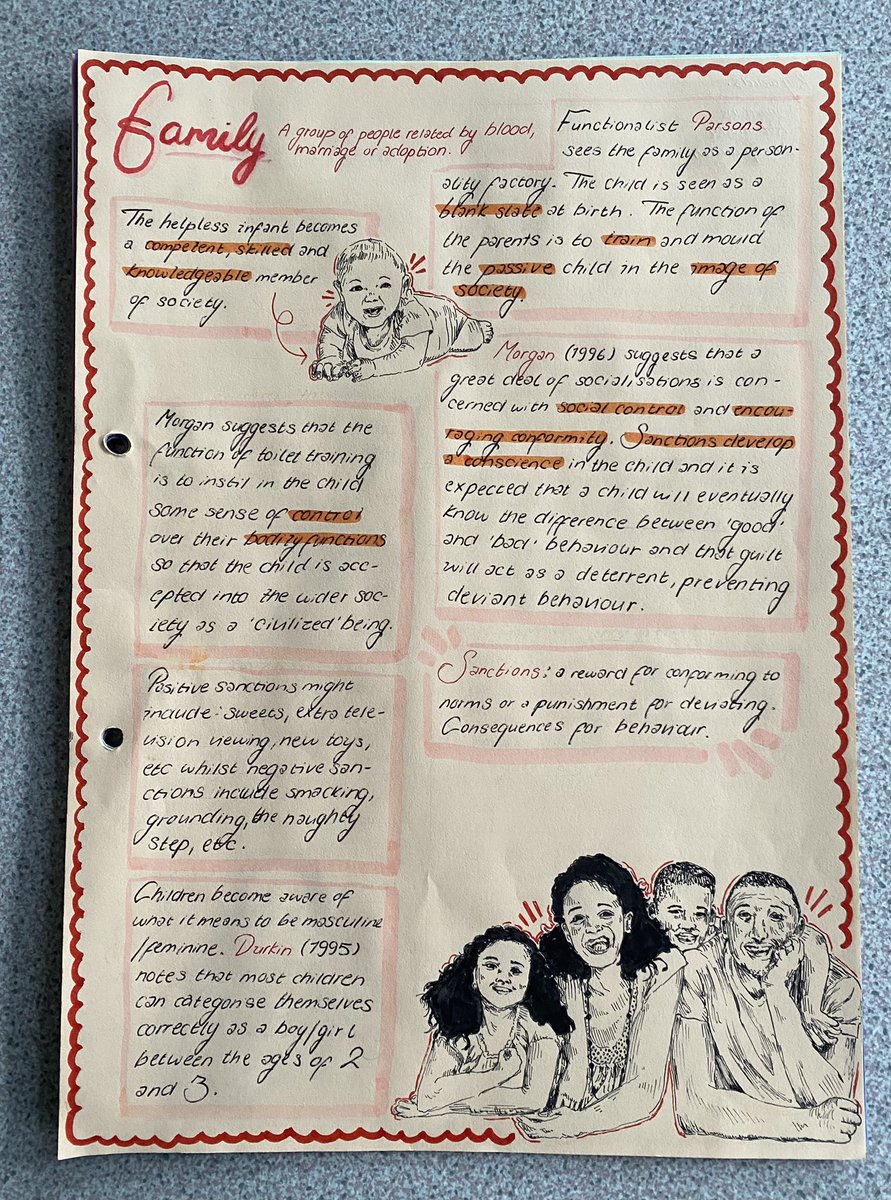 Family
A group of people related by blood,
marriage or adoption.
The helpless infant becomes
a competent, skilled and
knowledgeable member
of society.
Functionalist Parsons
sees the family as a person-
ality factory. The child is seen as a
blank slate at birth. The function of
the parents is to train and mould
the passive child in the image of
society.
Morgan (1996) suggests that a
great deal of socialisations is con-
cerned with social control and encou-
raging conformity. Sanctions develop
a conscience in the child and it is
expected that a child will eventually
know the difference between 'good'
and 'bad' behaviour and that guilt
will act as a deterrent, preventing
deviant behaviour.
Morgan suggests that the
function of toilet training
is to instil in the child
some sense of control
over their bodily functions
so that the child is acc-
epted into the wider soc-
iety as a 'civilized' being.
Sanctions: a reward for conforming to
norms or a punishment for deviating.
Consequences for behaviour.
Positive sanctions might
include: sweets, extra tele-
vision viewing, new toys,
etc whilst negative san-
ctions include smacking,
grounding, the naughty
step, etc.
Children become aware of
what it means to be masculine
/feminine. Durkin (1995)
notes that most children
can categorise themselves
correctly as a boy/girl
between the ages of 2
and 3.